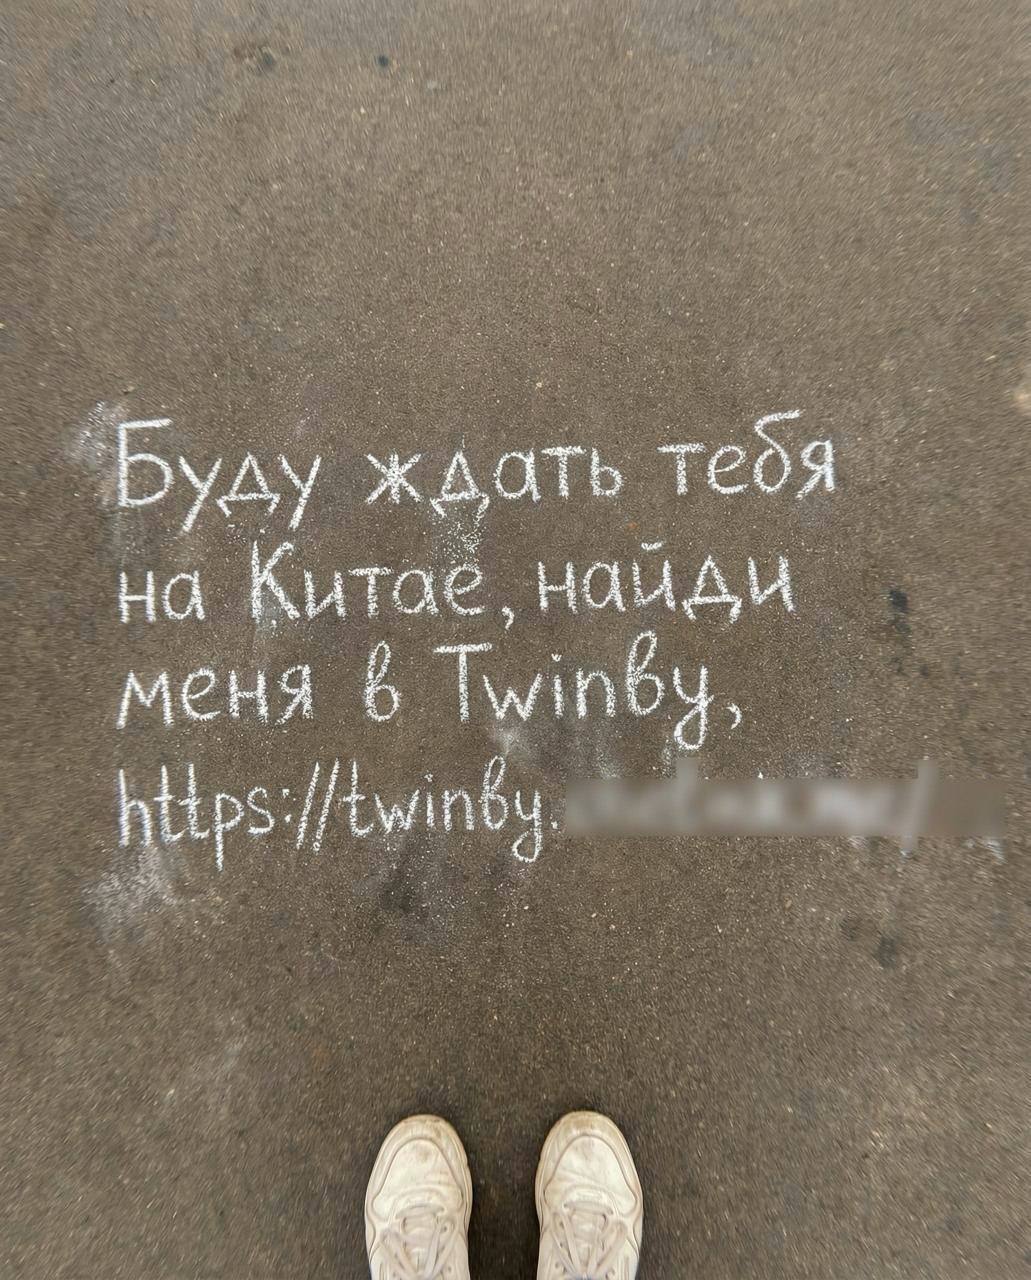 Буду ждать тебя
на Китае, найди
меня в Twinby,
https://twinby.